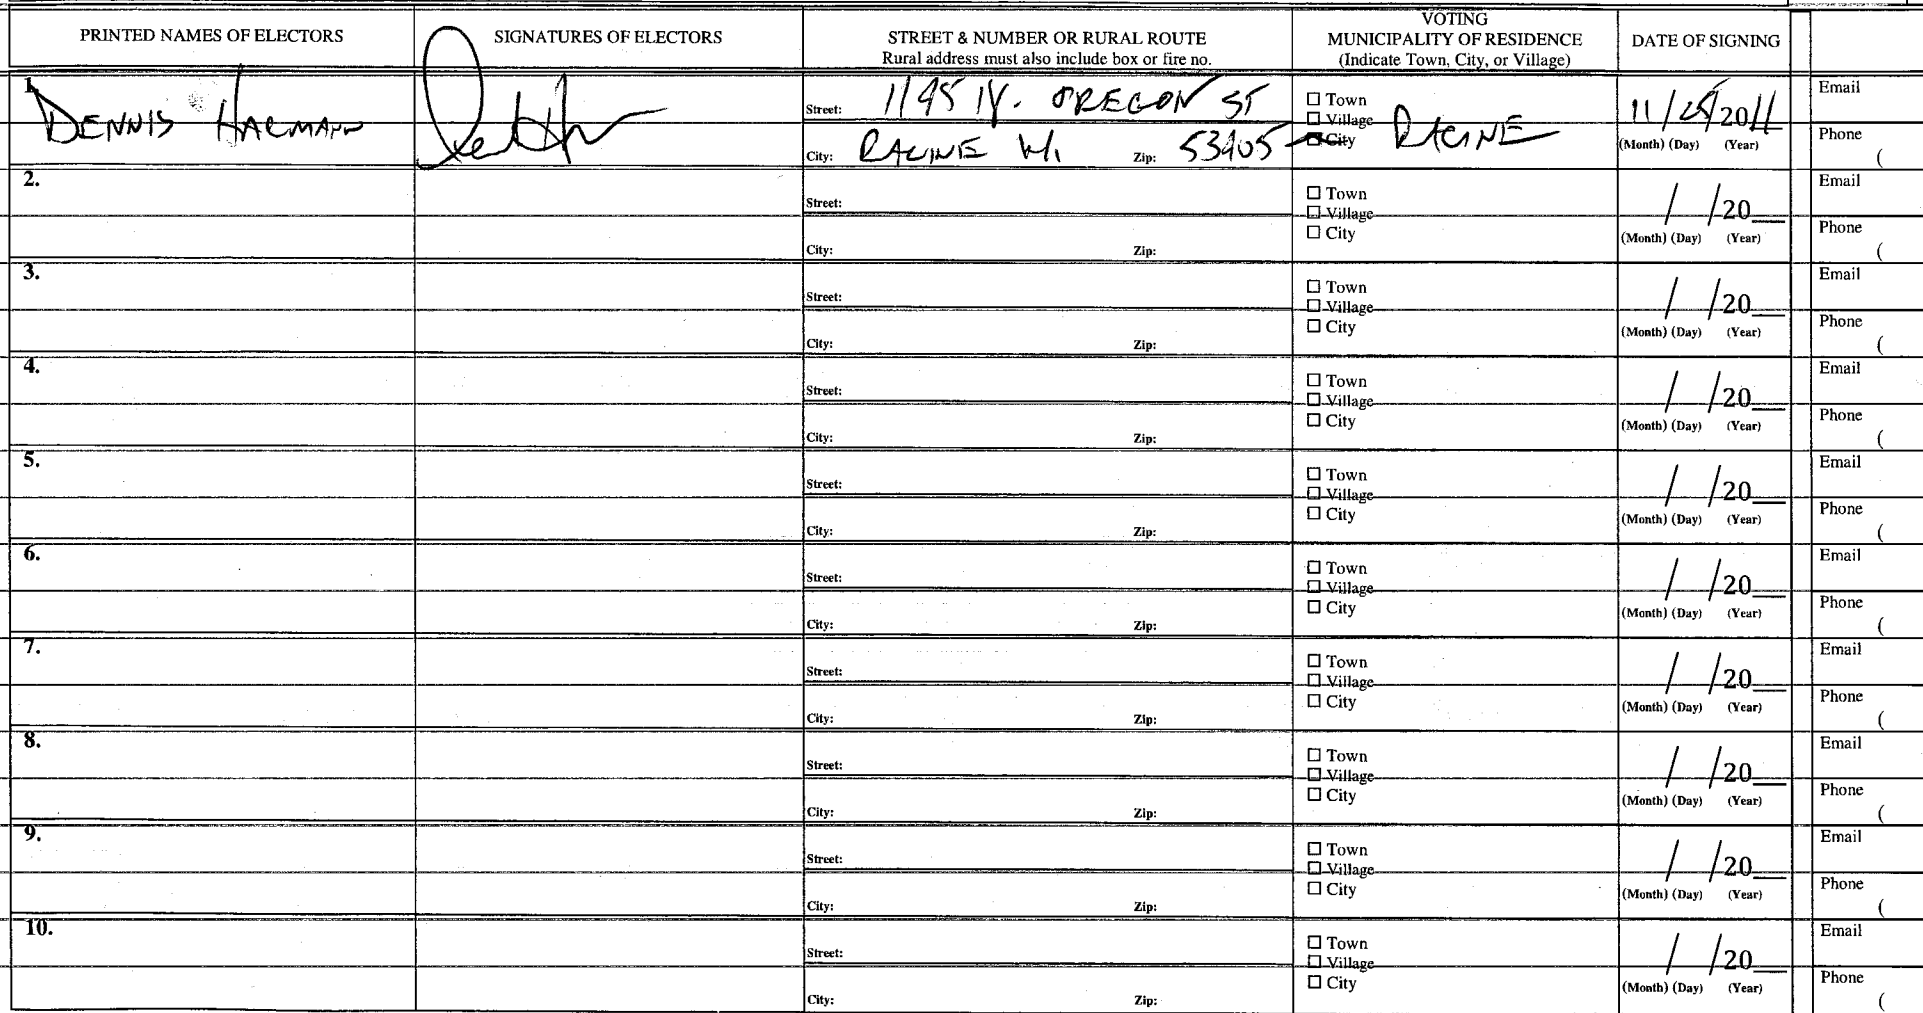 PRINTED NAMES OF ELECTORS
SIGNATURES OF ELECTORS
STREET & NUMBER OR RURAL ROUTE
Rural address must also include box or fire no.
VOTING
MUNICIPALITY OF RESIDENCE
(Indicate Town, City, or Village)
DATE OF SIGNING
1.
DENNIS
Street: OREGON ST
City: RACINE WI Zip: 53405
Town
Village
City
RACINE
11/25/2011
(Month) (Day) (Year)
Email
Phone
(
2.
Street:
City: Zip:
Town
Village
City
/ /20__
(Month) (Day) (Year)
Email
Phone
(
3.
Street:
City: Zip:
Town
Village
City
/ /20__
(Month) (Day) (Year)
Email
Phone
(
4.
Street:
City: Zip:
Town
Village
City
/ /20__
(Month) (Day) (Year)
Email
Phone
(
5.
Street:
City: Zip:
Town
Village
City
/ /20__
(Month) (Day) (Year)
Email
Phone
(
6.
Street:
City: Zip:
Town
Village
City
/ /20__
(Month) (Day) (Year)
Email
Phone
(
7.
Street:
City: Zip:
Town
Village
City
/ /20__
(Month) (Day) (Year)
Email
Phone
(
8.
Street:
City: Zip:
Town
Village
City
/ /20__
(Month) (Day) (Year)
Email
Phone
(
9.
Street:
City: Zip:
Town
Village
City
/ /20__
(Month) (Day) (Year)
Email
Phone
(
10.
Street:
City: Zip:
Town
Village
City
/ /20__
(Month) (Day) (Year)
Email
Phone
(